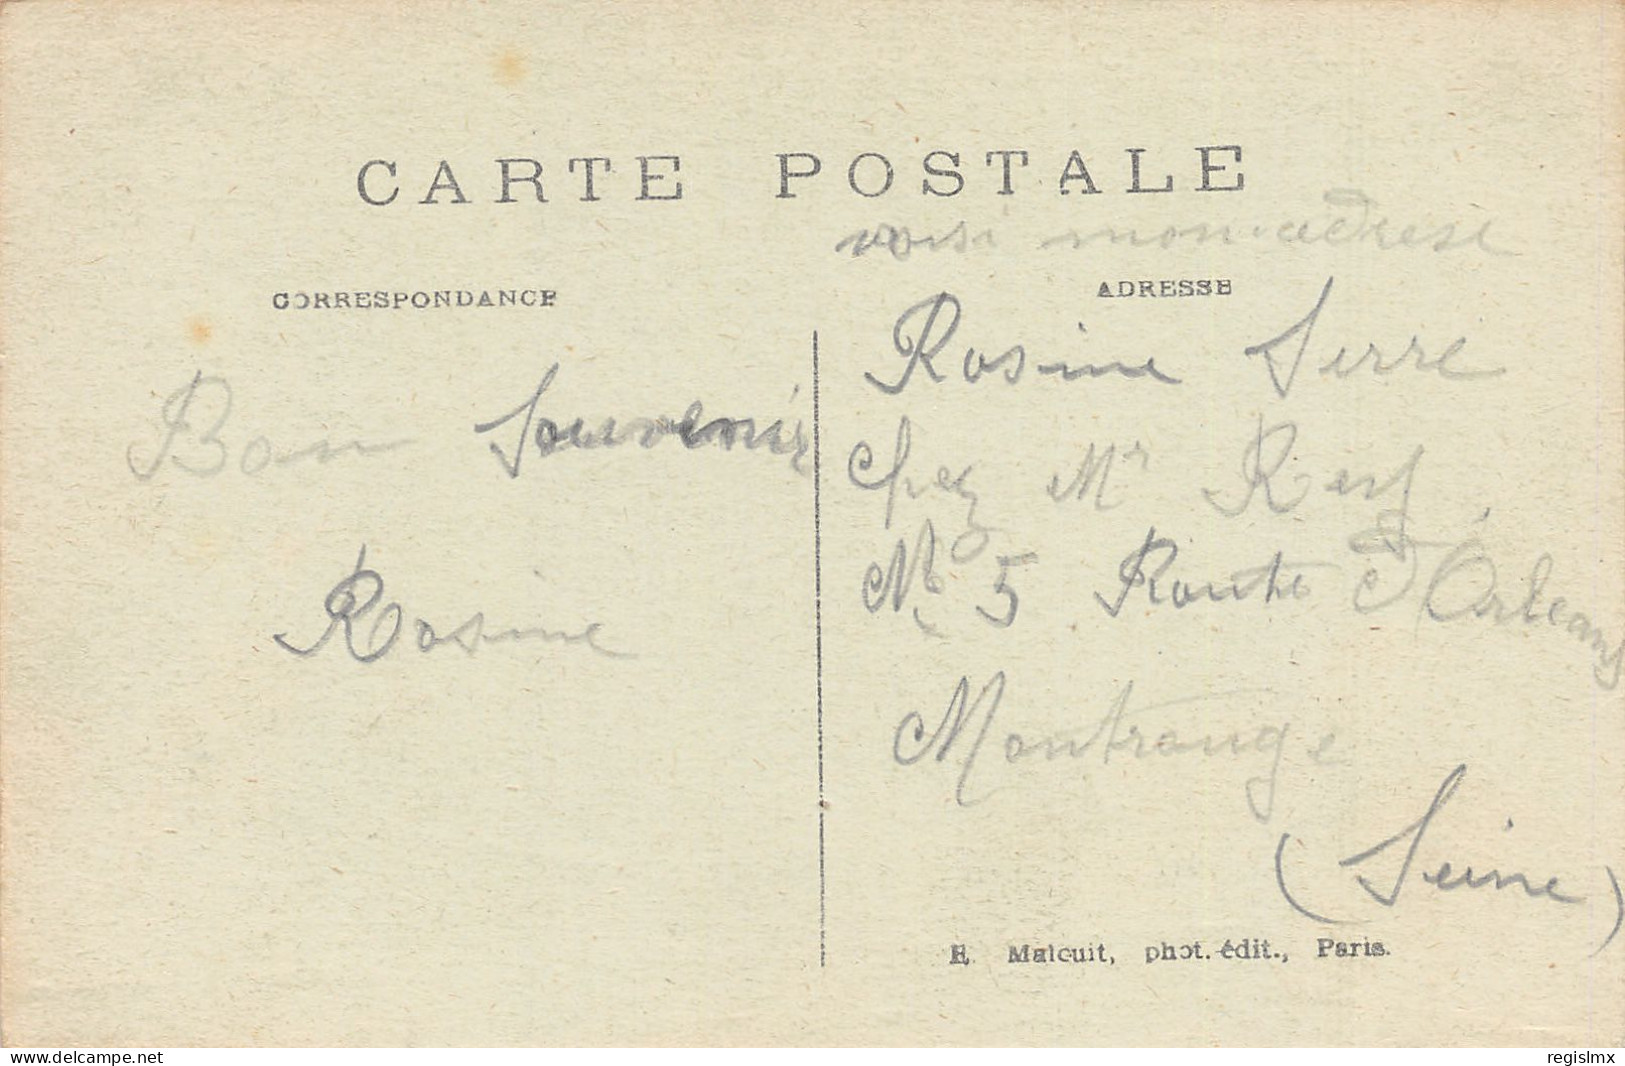 CARTE POSTALE
voisi mon adrese
CORRESPONDANCE
ADRESSE
Bon Souvenir
Rosine
Rosine Serre
Chez Mr
No 5 Route d'Orleans
Montrouge
(Seine)
E. Malcuit, phot. édit., Paris.
www.delcampe.net
regislmx